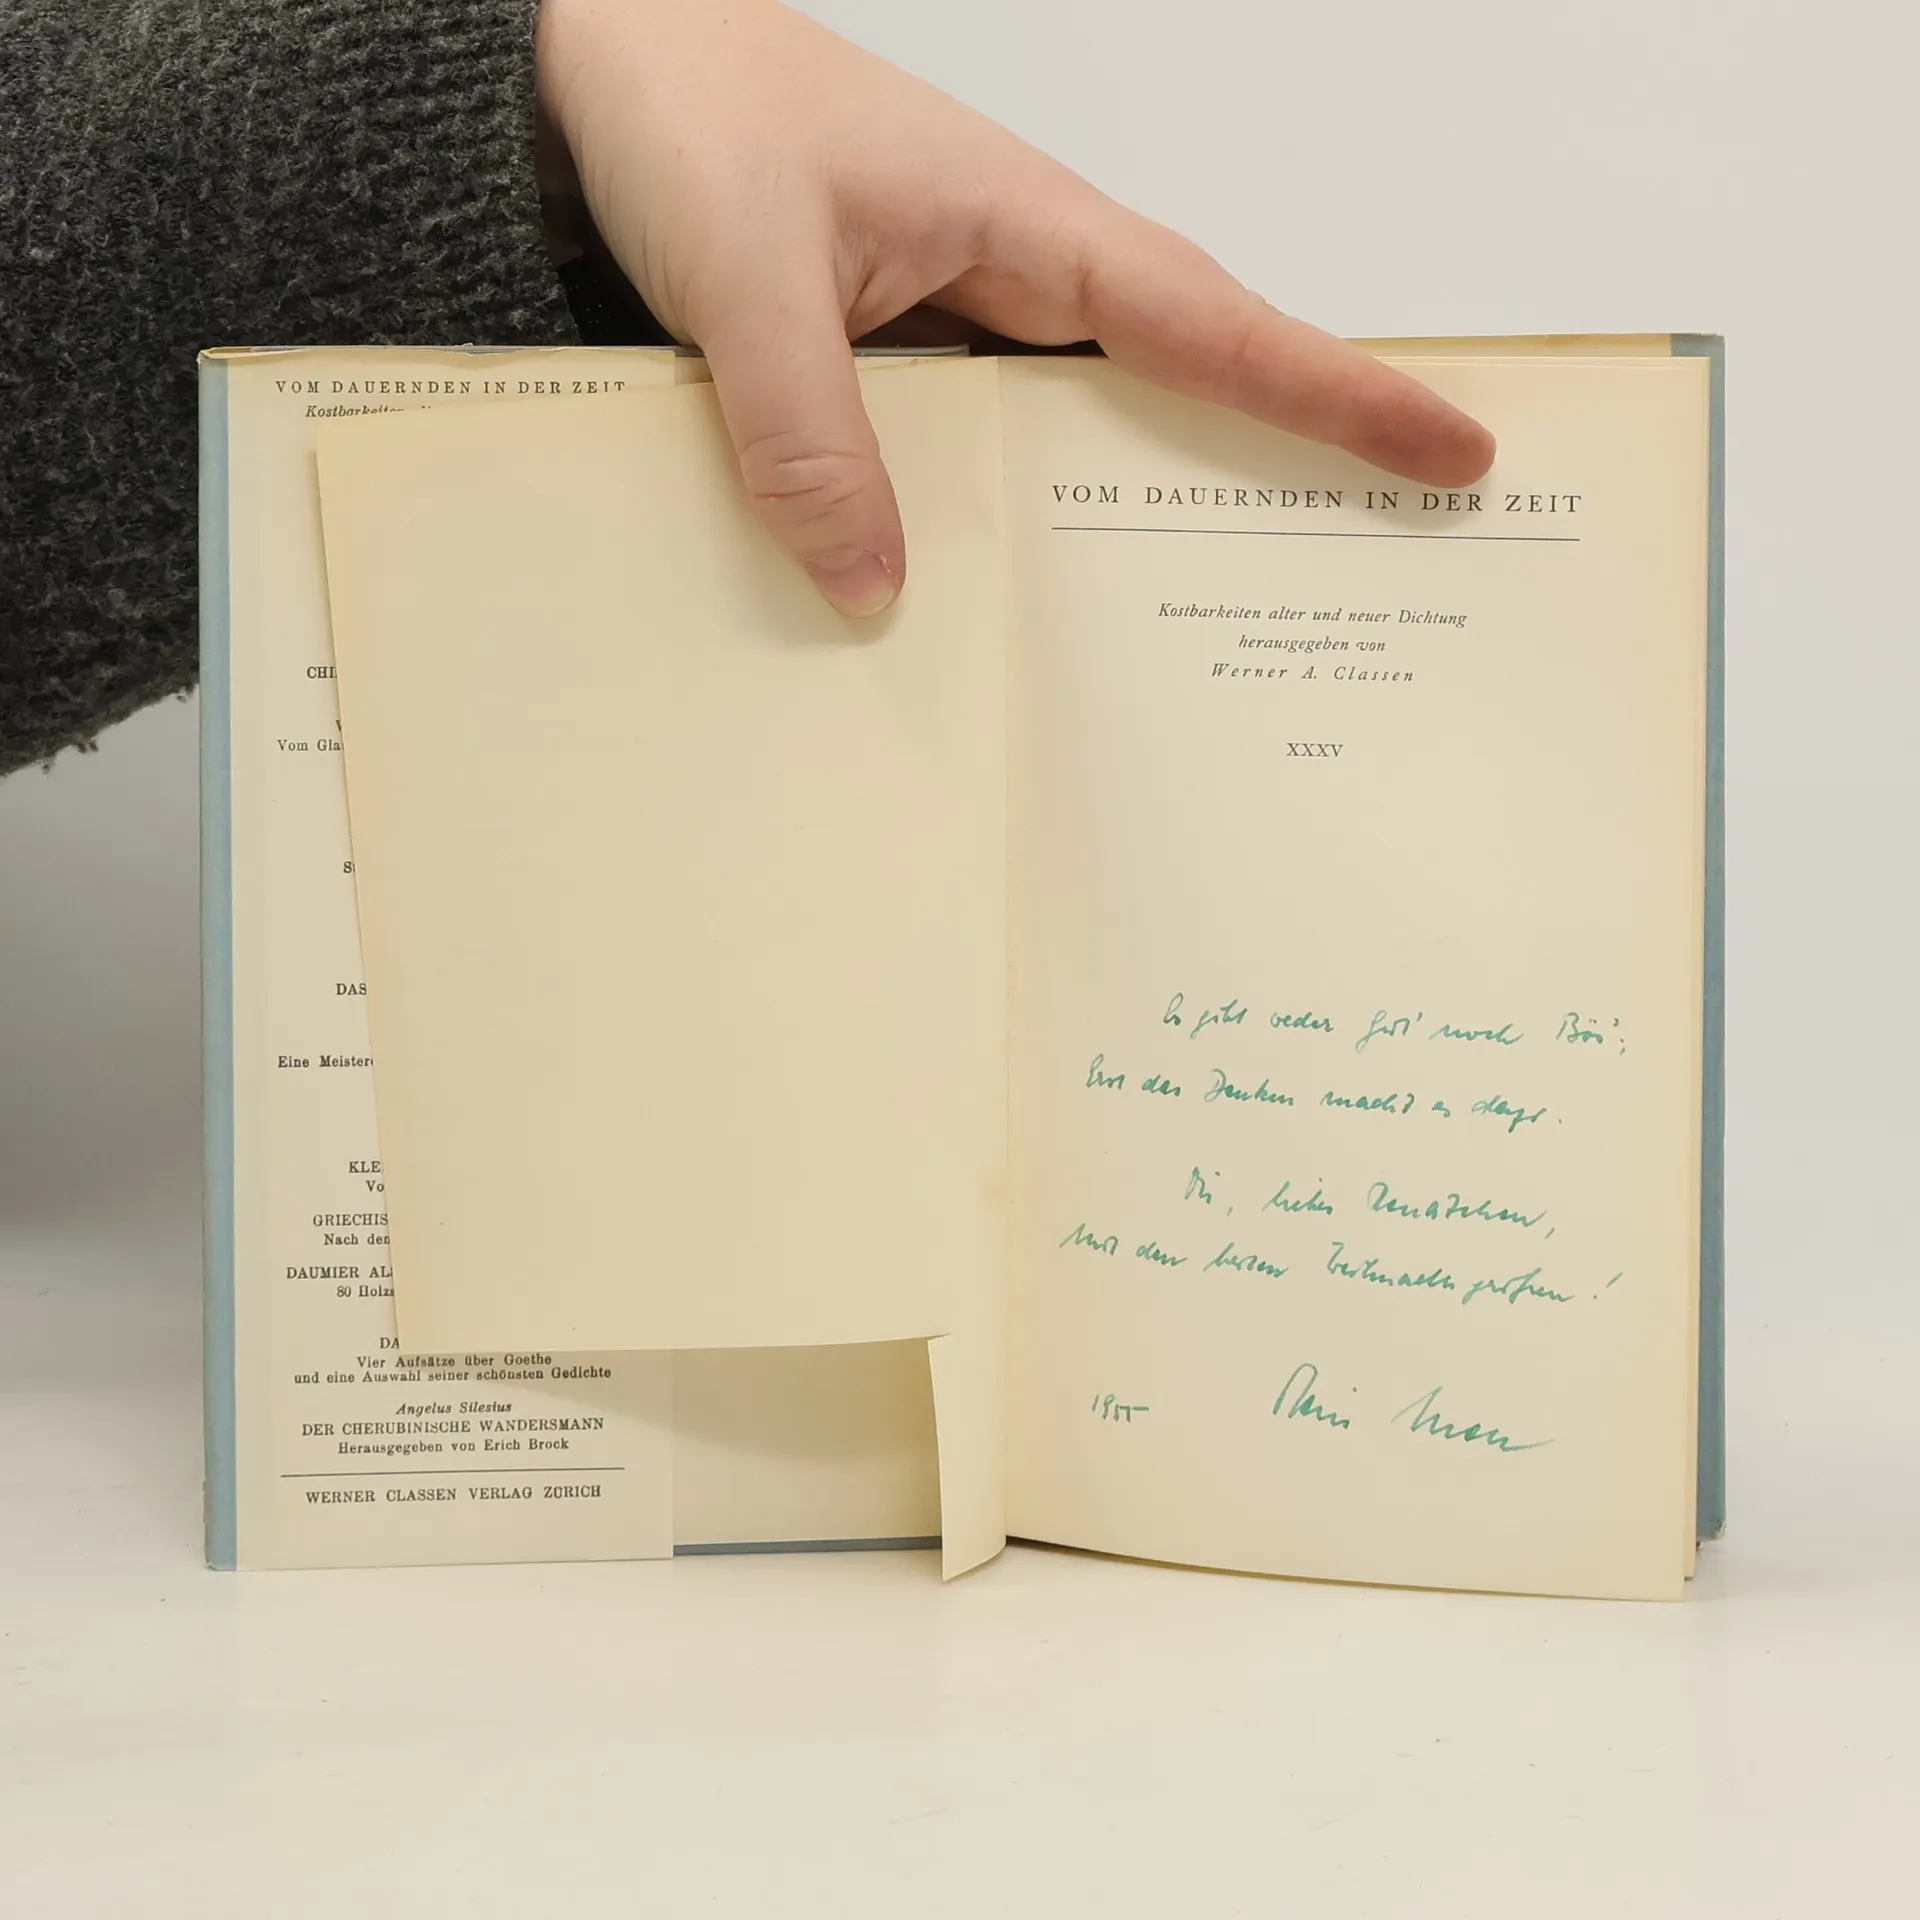 VOM DAUERNDEN IN DER ZEIT
Kostbarkeiten
CHI
V
Vom Gla
S
DAS
Eine Meister
KLE
Vo
GRIECHIS
Nach den
DAUMIER AL
80 Holzs
DA
Vier Aufsätze über Goethe
und eine Auswahl seiner schönsten Gedichte
Angelus Silesius
DER CHERUBINISCHE WANDERSMANN
Herausgegeben von Erich Brock
WERNER CLASSEN VERLAG ZÜRICH
VOM DAUERNDEN IN DER ZEIT
Kostbarkeiten alter und neuer Dichtung
herausgegeben von
Werner A. Classen
XXXV
Es gibt weder Gut' noch Bös';
Erst das Denken macht es dazu.
Dir, liebes Renatchen,
mit den besten Weihnachtsgrüssen!
1955